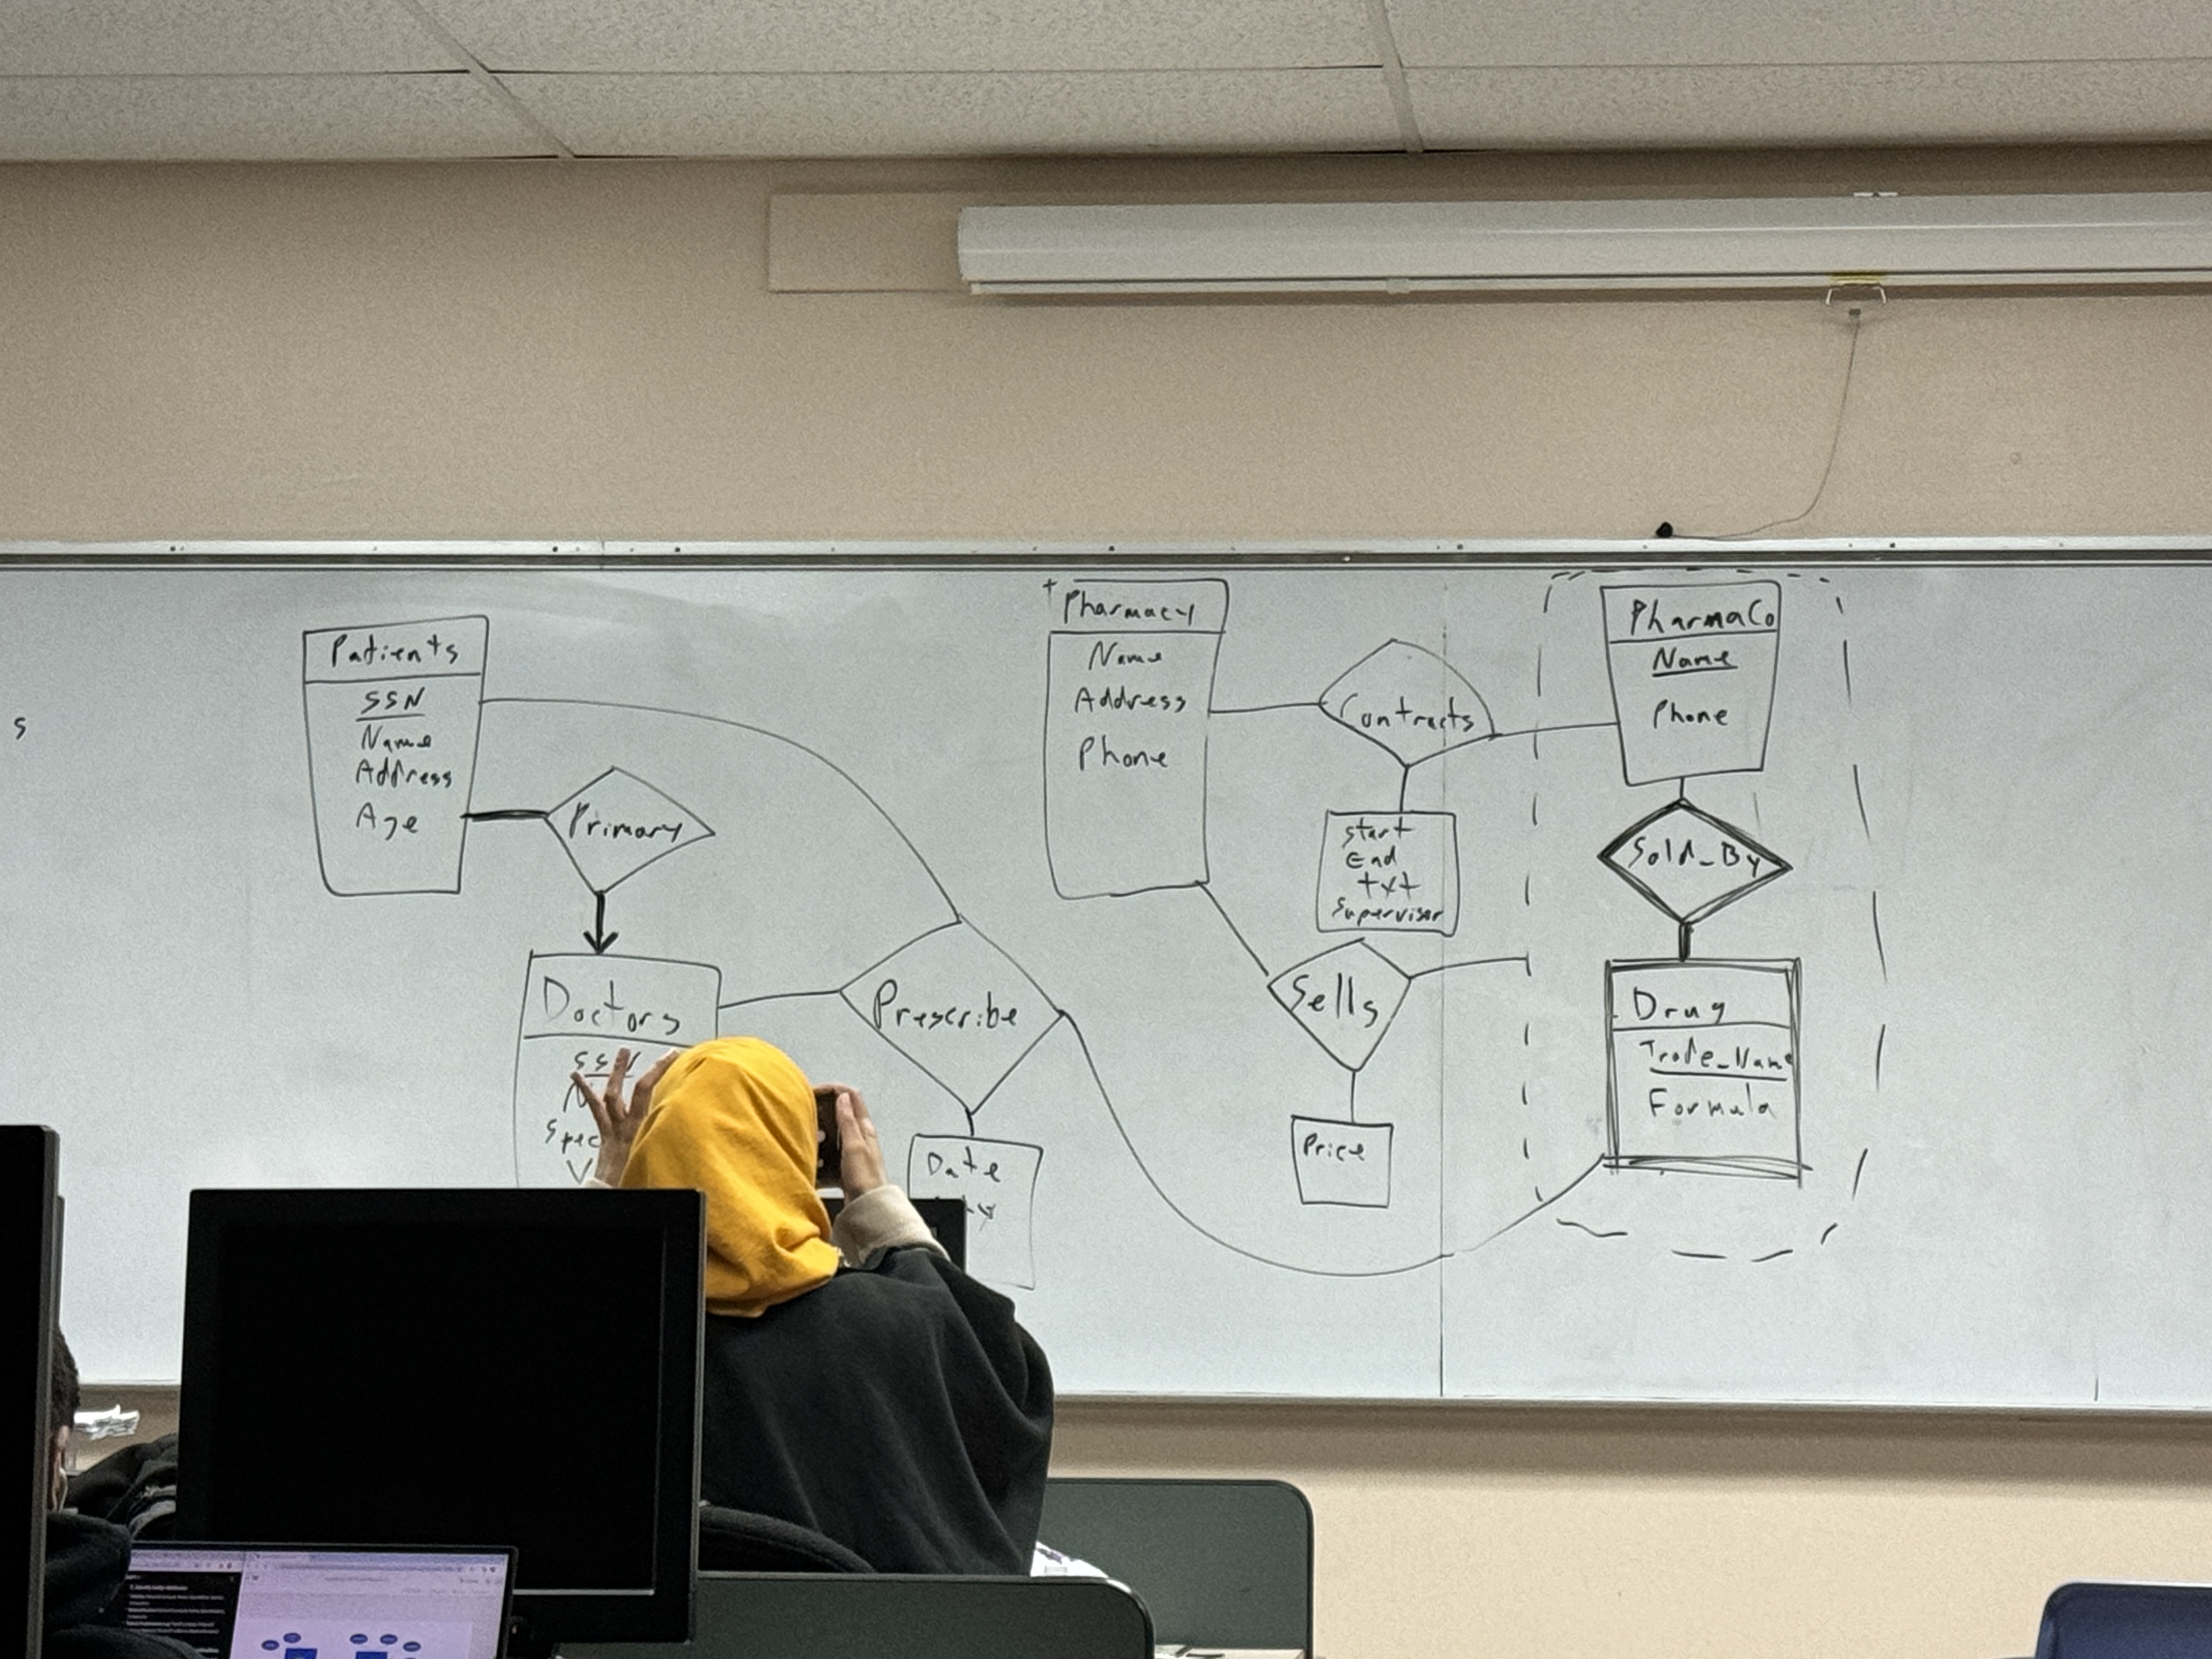 s
Patients
SSN
Name
Address
Age
Primary
Doctors
SSN
Prescribe
Date
Pharmacy
Name
Address
Phone
Contracts
Start
End
txt
Supervisor
Sells
Price
PharmaCo
Name
Phone
Sold_By
Drug
Trade_Name
Formula